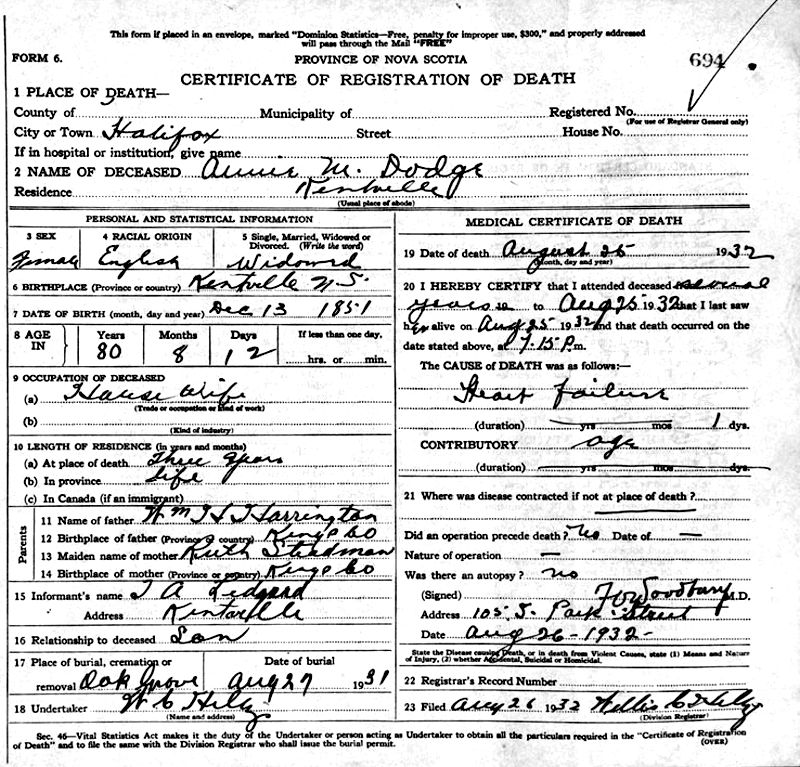 This form if placed in an envelope, marked "Dominion Statistics—Free, penalty for improper use, $300," and properly addressed
will pass through the Mail "FREE"
FORM 6. PROVINCE OF NOVA SCOTIA 694
CERTIFICATE OF REGISTRATION OF DEATH
1 PLACE OF DEATH—
County of Municipality of Registered No.
(For use of Registrar General only)
City or Town Halifax Street House No.
If in hospital or institution, give name
2 NAME OF DECEASED Annie M. Dodge
Residence Kentville
(Usual place of abode)
PERSONAL AND STATISTICAL INFORMATION
3 SEX 4 RACIAL ORIGIN 5 Single, Married, Widowed or
Divorced. (Write the word)
Female English Widowed
6 BIRTHPLACE (Province or country) Kentville N.S.
7 DATE OF BIRTH (month, day and year) Dec 13 1851
8 AGE IN Years Months Days If less than one day,
80 8 12 hrs. or min.
9 OCCUPATION OF DECEASED
(a) House Wife
(Trade or occupation or kind of work)
(b)
(Kind of industry)
10 LENGTH OF RESIDENCE (in years and months)
(a) At place of death Three Years
(b) In province Life
(c) In Canada (if an immigrant)
Parents
11 Name of father Wm Harrington
12 Birthplace of father (Province or country) Kings Co
13 Maiden name of mother Ruth Steadman
14 Birthplace of mother (Province or country) Kings Co
15 Informant's name
Address Kentville
16 Relationship to deceased Son
17 Place of burial, cremation or Date of burial
removal Oak Grove Aug 27 1931
18 Undertaker W C
(Name and address)
MEDICAL CERTIFICATE OF DEATH
19 Date of death August 25 1932
(Month, day and year)
20 I HEREBY CERTIFY that I attended deceased several
years 19 to Aug 25 1932 that I last saw
her alive on Aug 25 1932 and that death occurred on
date stated above, at 7.15 P.m.
The CAUSE of DEATH was as follows:—
Heart Failure
(duration) yrs mos 1 dys.
CONTRIBUTORY age
(duration) yrs mos dys.
21 Where was disease contracted if not at place of death?
Did an operation precede death? No Date of —
Nature of operation —
Was there an autopsy? no
(Signed) Woodbury M.D.
Address 105 S. Park Street
Date Aug 26 - 1932 -
State the Disease causing Death, or in death from Violent Causes, state (1) Means and Nature
of Injury, (2) whether Accidental, Suicidal or Homicidal.
22 Registrar's Record Number
23 Filed Aug 26 1932 Willis C
(Division Registrar)
Sec. 46—Vital Statistics Act makes it the duty of the Undertaker or person acting as Undertaker to obtain all the particulars required in the "Certificate of Registration
of Death" and to file the same with the Division Registrar who shall issue the burial permit. (OVER)